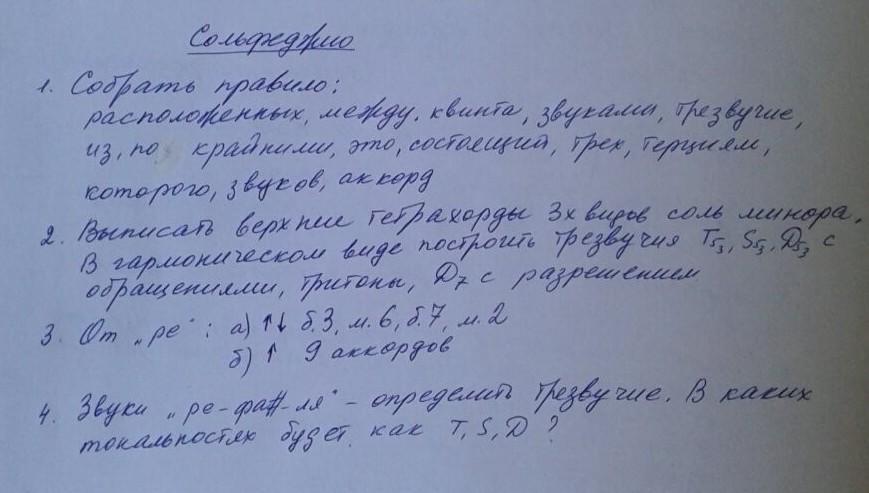 Сольфеджио
1. Собрать правило:
расположенных, между, квинта, звуками, трезвучие,
из, по крайними, это, состоящий, трех, терциям,
которого, звуков, аккорд
2. Выписать верхние тетрахорды 3х видов соль минора.
В гармоническом виде построить трезвучия T53, S53, D53 с
обращениями, тритоны, D7 с разрешением
3. От "ре": а) ↑↓ б.3, м.6, б.7, м.2
б) ↑ 9 аккордов
4. Звуки "ре-фа#-ля" - определить трезвучие. В каких
тональностях будет как T, S, D?